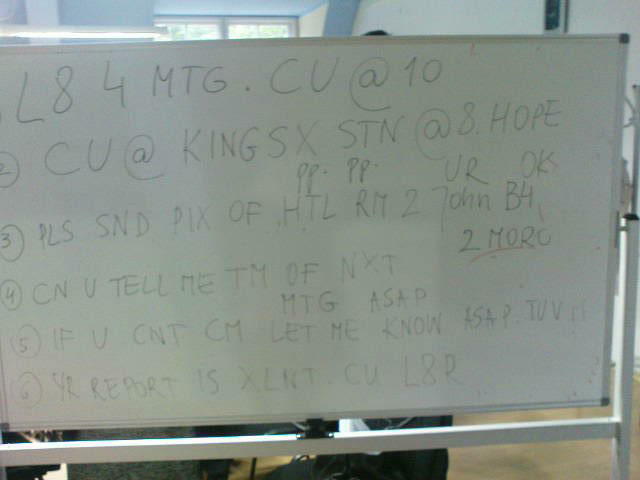 L8 4 MTG. CU @ 10
② CU @ KINGS X STN @ 8. HOPE
UR OK
③ PLS SND PIX OF HTL RM 2 John B4
2 MORO
④ CN U TELL ME TM OF NXT
MTG ASAP
⑤ IF U CNT CM LET ME KNOW ASAP. TUV !!
⑥ YR REPORT IS XLNT. CU L8R